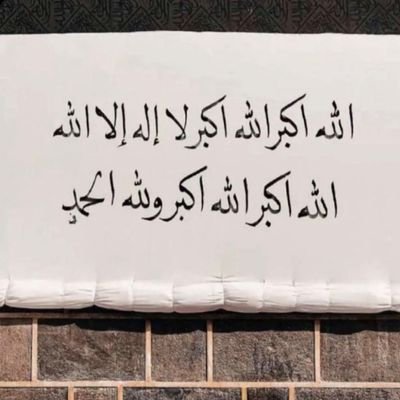 الله اكبر الله اكبر لا إله إلا الله
الله اكبر الله اكبر ولله الحمد